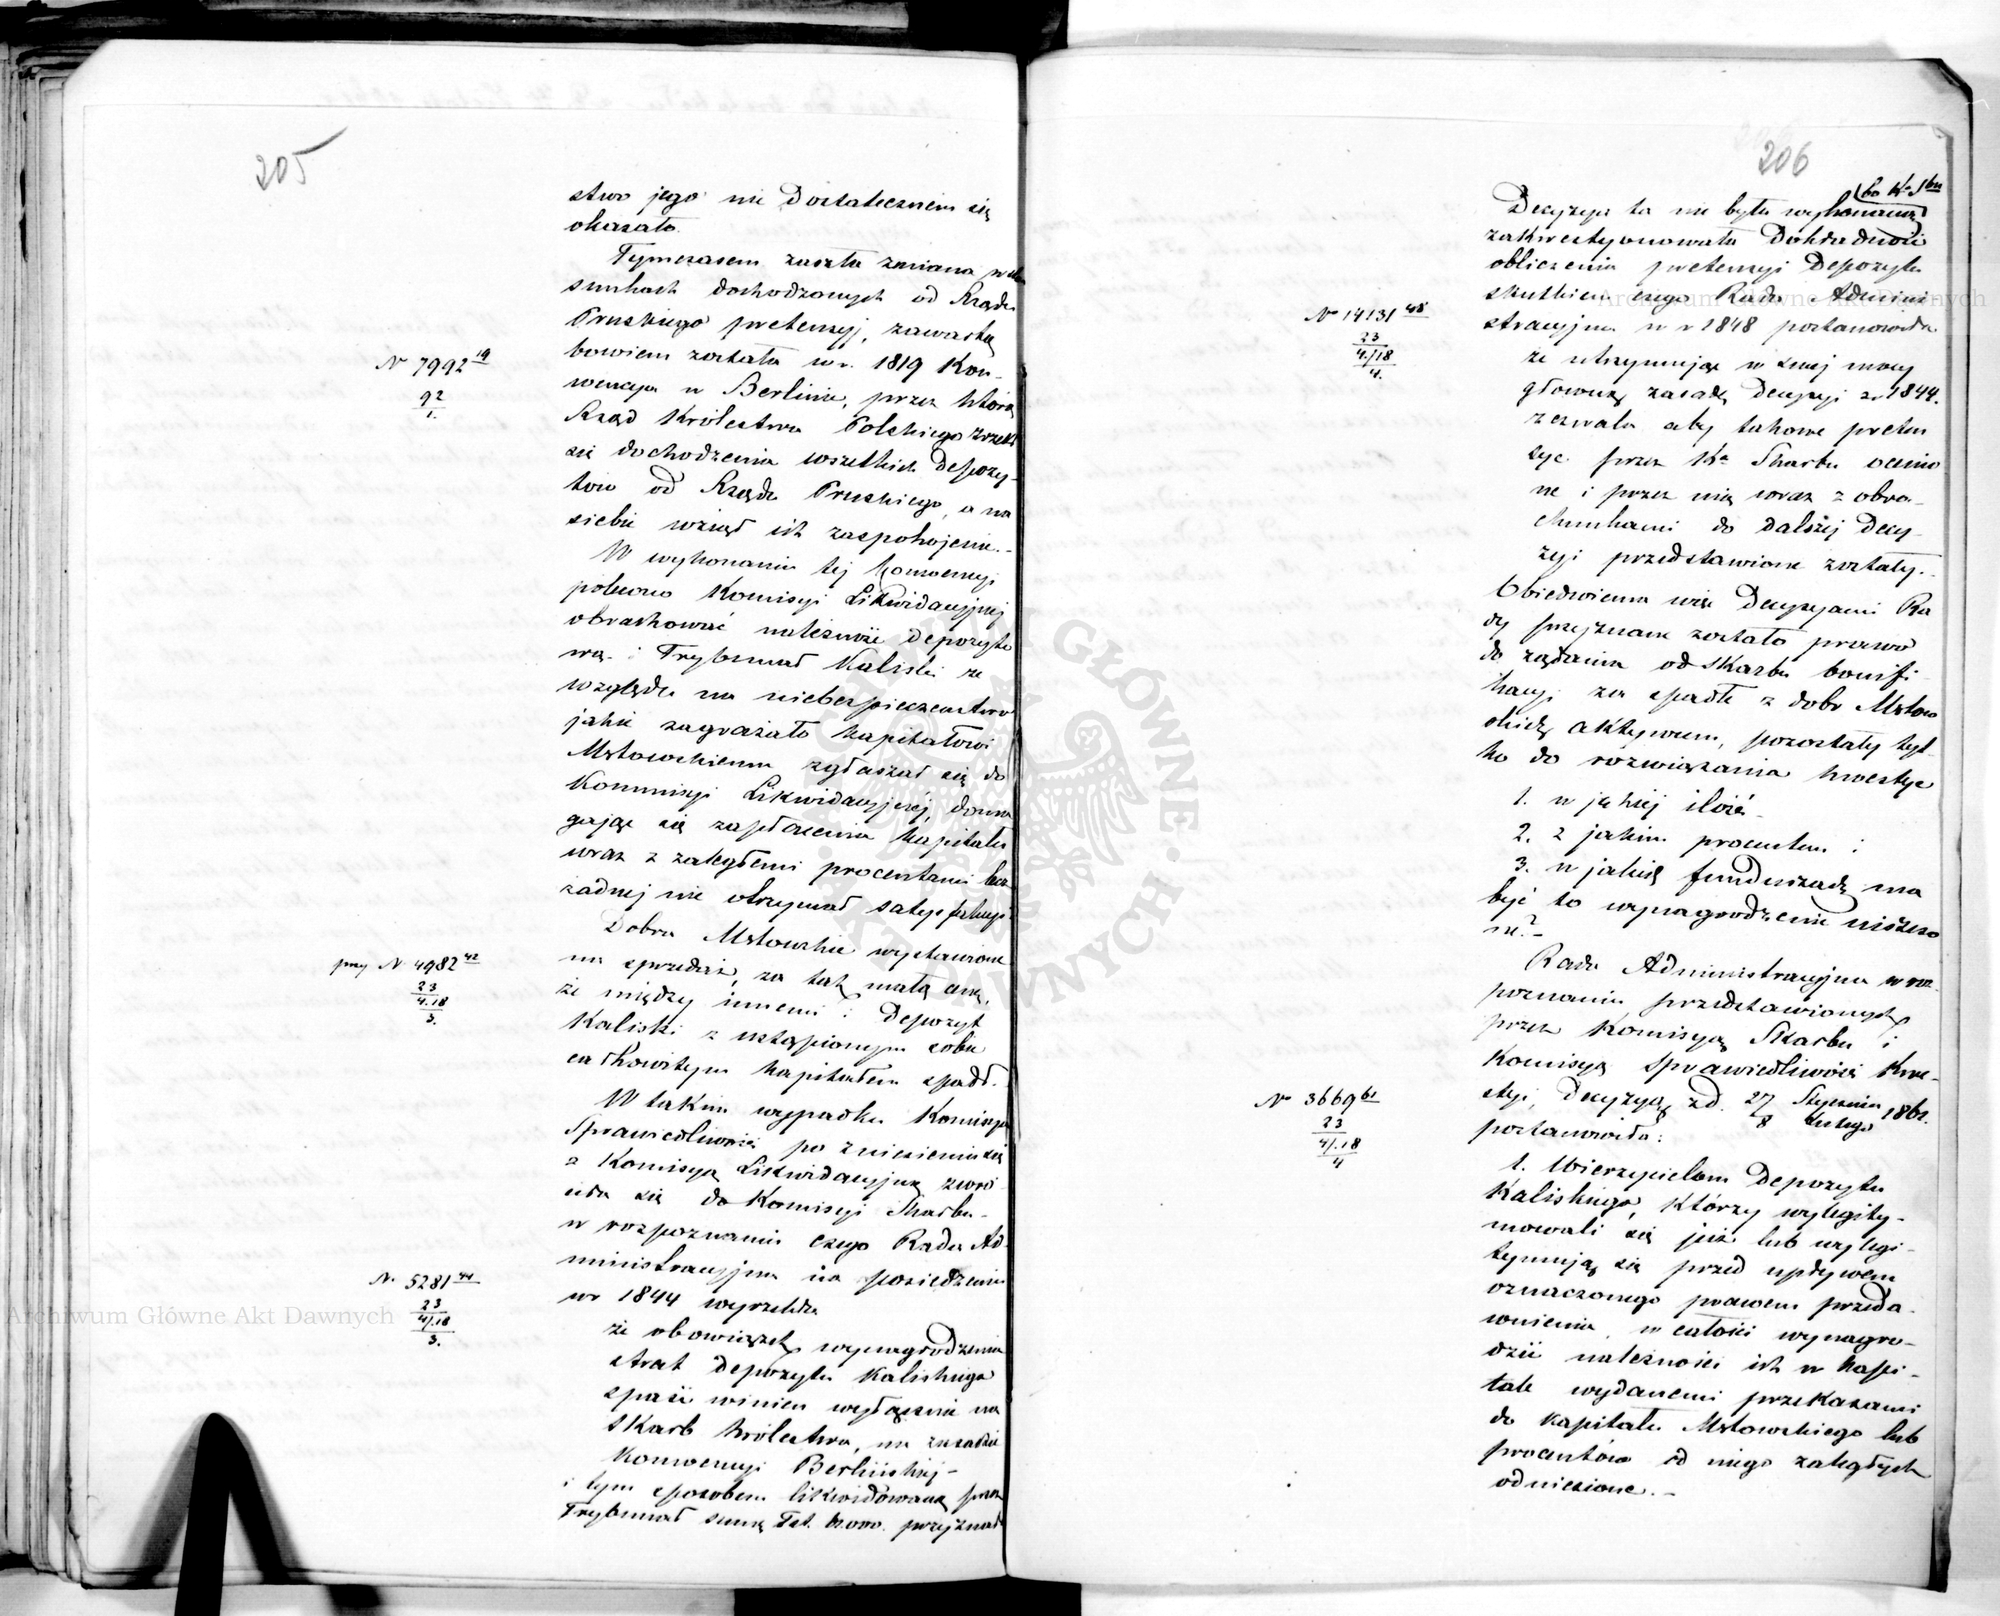 205
stwo jego nie Dostatecznem się
okazało.
Tymczasem zaszła zmiana w sto
sunkach dochodzonych od Rządu
Pruskiego pretensyj, zawartą
bowiem została w r. 1819 Kon-
wencya w Berlinie, przez którą
Rząd Królestwa Polskiego zrzekł
się dochodzenia wszelkich Depozy-
tów od Rządu Pruskiego, a na
siebie wziął ich zaspokojenie.-
W wykonaniu tej konwencyi
polecono Komisyi Likwidacyjnej
obrachować należność depozyto
wą i Trybunał Kaliski ze
względu na niebezpieczeństwo
jakie zagrażało kapitałowi
Mstowskiemu zgłaszał się do
Kommisyi Likwidacyjnej, doma
gając się zapłacenia kapitału
wraz z zaległemi procentami lecz
żadnej nie otrzymał satysfakcyi
Dobra Mstowskie wystawione
na sprzedaż, za tak małą cenę,
że między innemi i Depozyt
Kaliski z ustąpionym sobie
całkowitym kapitałem spadł.
W takim wypadku Komisya
Sprawiedliwości po zniesieniu się
z Komisyą Likwidacyjną zwró-
ciła się do Komisyi Skarbu-
w rozpoznaniu czego Rada Ad-
ministracyjna na posiedzeniu
w r 1844 wyrzekła
że obowiązek wynagrodzenia
strat Depozytu Kaliskiego
spaść winien wyłącznie na
Skarb Królestwa, na zasadzie
Konwencyi Berlińskiej-
i tym sposobem likwidowaną przez
Trybunał sumę przyznała
N 7992 19
92
1.
przy N 4982 42
23
4.18
3.
N. 5281 44
23
4/.18
3.
206
Decyzya ta nie była wykonaną (bo K. Sbu
zakwestyonowała Dokładność
obliczenia pretensyi Depozytu
skutkiem czego Rada Admini
stracyjna w r 1848 postanowiła
że utrzymując w swej mocy
główną zasadę Decyzyi z r 1844.
zezwala aby takowe preten
sye przez Kę Skarbu ocenio
ne i przez nią wraz z obra-
chunkami do dalszej Decy-
zyi przedstawione zostały.-
Obiedwiema więc Decyzyami Ra
dy przyznane zostało prawo
do żądania od Skarbu bonifi-
kacyi za spadłe z dóbr Mstow
skich aktywum, pozostały tyl-
ko do rozwiązania kwestye
1. w jakiej ilości
2. z jakim procentem i
3. w jakich funduszach ma
być to wynagrodzenie uiszczo
ne?-
Rada Administracyjna w roz-
poznaniu przedstawionych
przez Komisyą Skarbu i
Komisyą Sprawiedliwości Kwe-
styi, Decyzyą z d. 27 Stycznia 1862.
8 Lutego
postanowiła:
1. Wierzycielom Depozytu
Kaliskiego, którzy wylegity-
mowali się już lub wylegi-
tymują się przed upływem
oznaczonego prawem przeda-
wnienia, w całości wynagro-
dzić należności ich w kapi-
tale wydanemi przekazami
do kapitału Mstowskiego lub
procentów od niego zaległych
odniesione.-
No 14131 48
23
4/18
4.
No 3669 61
23
4/.18
4
Archiwum Główne Akt Dawnych
Archiwum Główne Akt Dawnych
ARCHIWUM GŁÓWNE AKT DAWNYCH